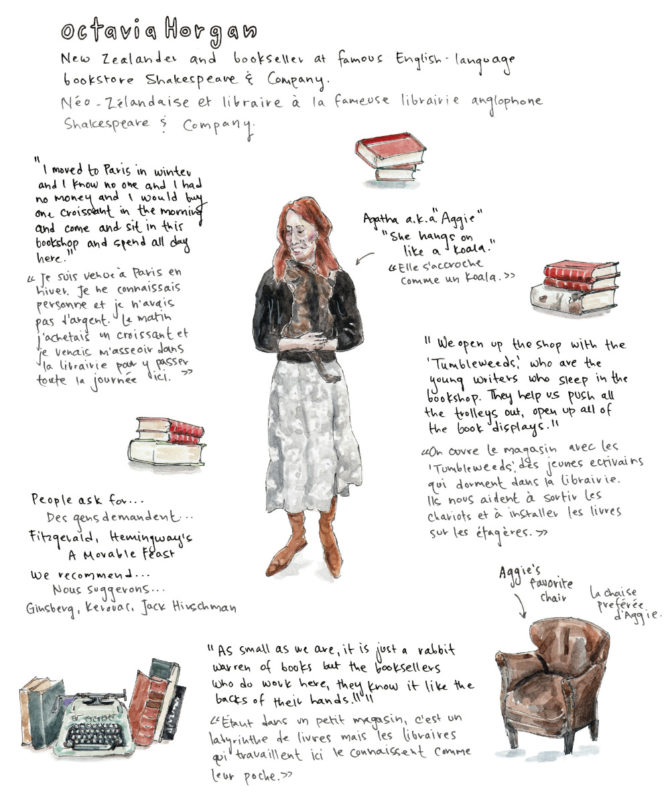 octavia Horgan
New Zealander and bookseller at famous English-language
bookstore Shakespeare & Company.
Néo-Zélandaise et libraire à la fameuse librairie anglophone
Shakespeare & Company.
"I moved to Paris in winter
and I know no one and I had
no money and I would buy
one croissant in the morning
and come and sit in this
bookshop and spend all day
here."
«Je suis venue à Paris en
hiver. Je ne connaissais
personne et je n'avais
pas d'argent. Le matin
j'achetais un croissant et
je venais m'asseoir dans
la librairie pour y passer
toute la journée ici. »
Agatha a.k.a "Aggie"
"She hangs on
like a koala."
«Elle s'accroche
comme un koala.»
"We open up the shop with the
'Tumbleweeds,' who are the
young writers who sleep in the
bookshop. They help us push all
the trolleys out, open up all of
the book displays."
«On ouvre le magasin avec les
'Tumbleweeds', des jeunes ecrivains
qui dorment dans la librairie.
Ils nous aident à sortir les
chariots et à installer les livres
sur les étagères.»
People ask for...
Des gens demandent...
Fitzgerald, Hemingway's
A Movable Feast
We recommend...
Nous suggerons...
Ginsberg, Kerouac, Jack Hirschman
Aggie's
favorite
chair
la chaise
preférée
d'Aggie.
"As small as we are, it is just a rabbit
warren of books but the booksellers
who do work here, they know it like the
backs of their hands!"
«Étant dans un petit magasin, c'est un
labyrinthe de livres mais les libraires
qui travaillent ici le connaissent comme
leur poche.»